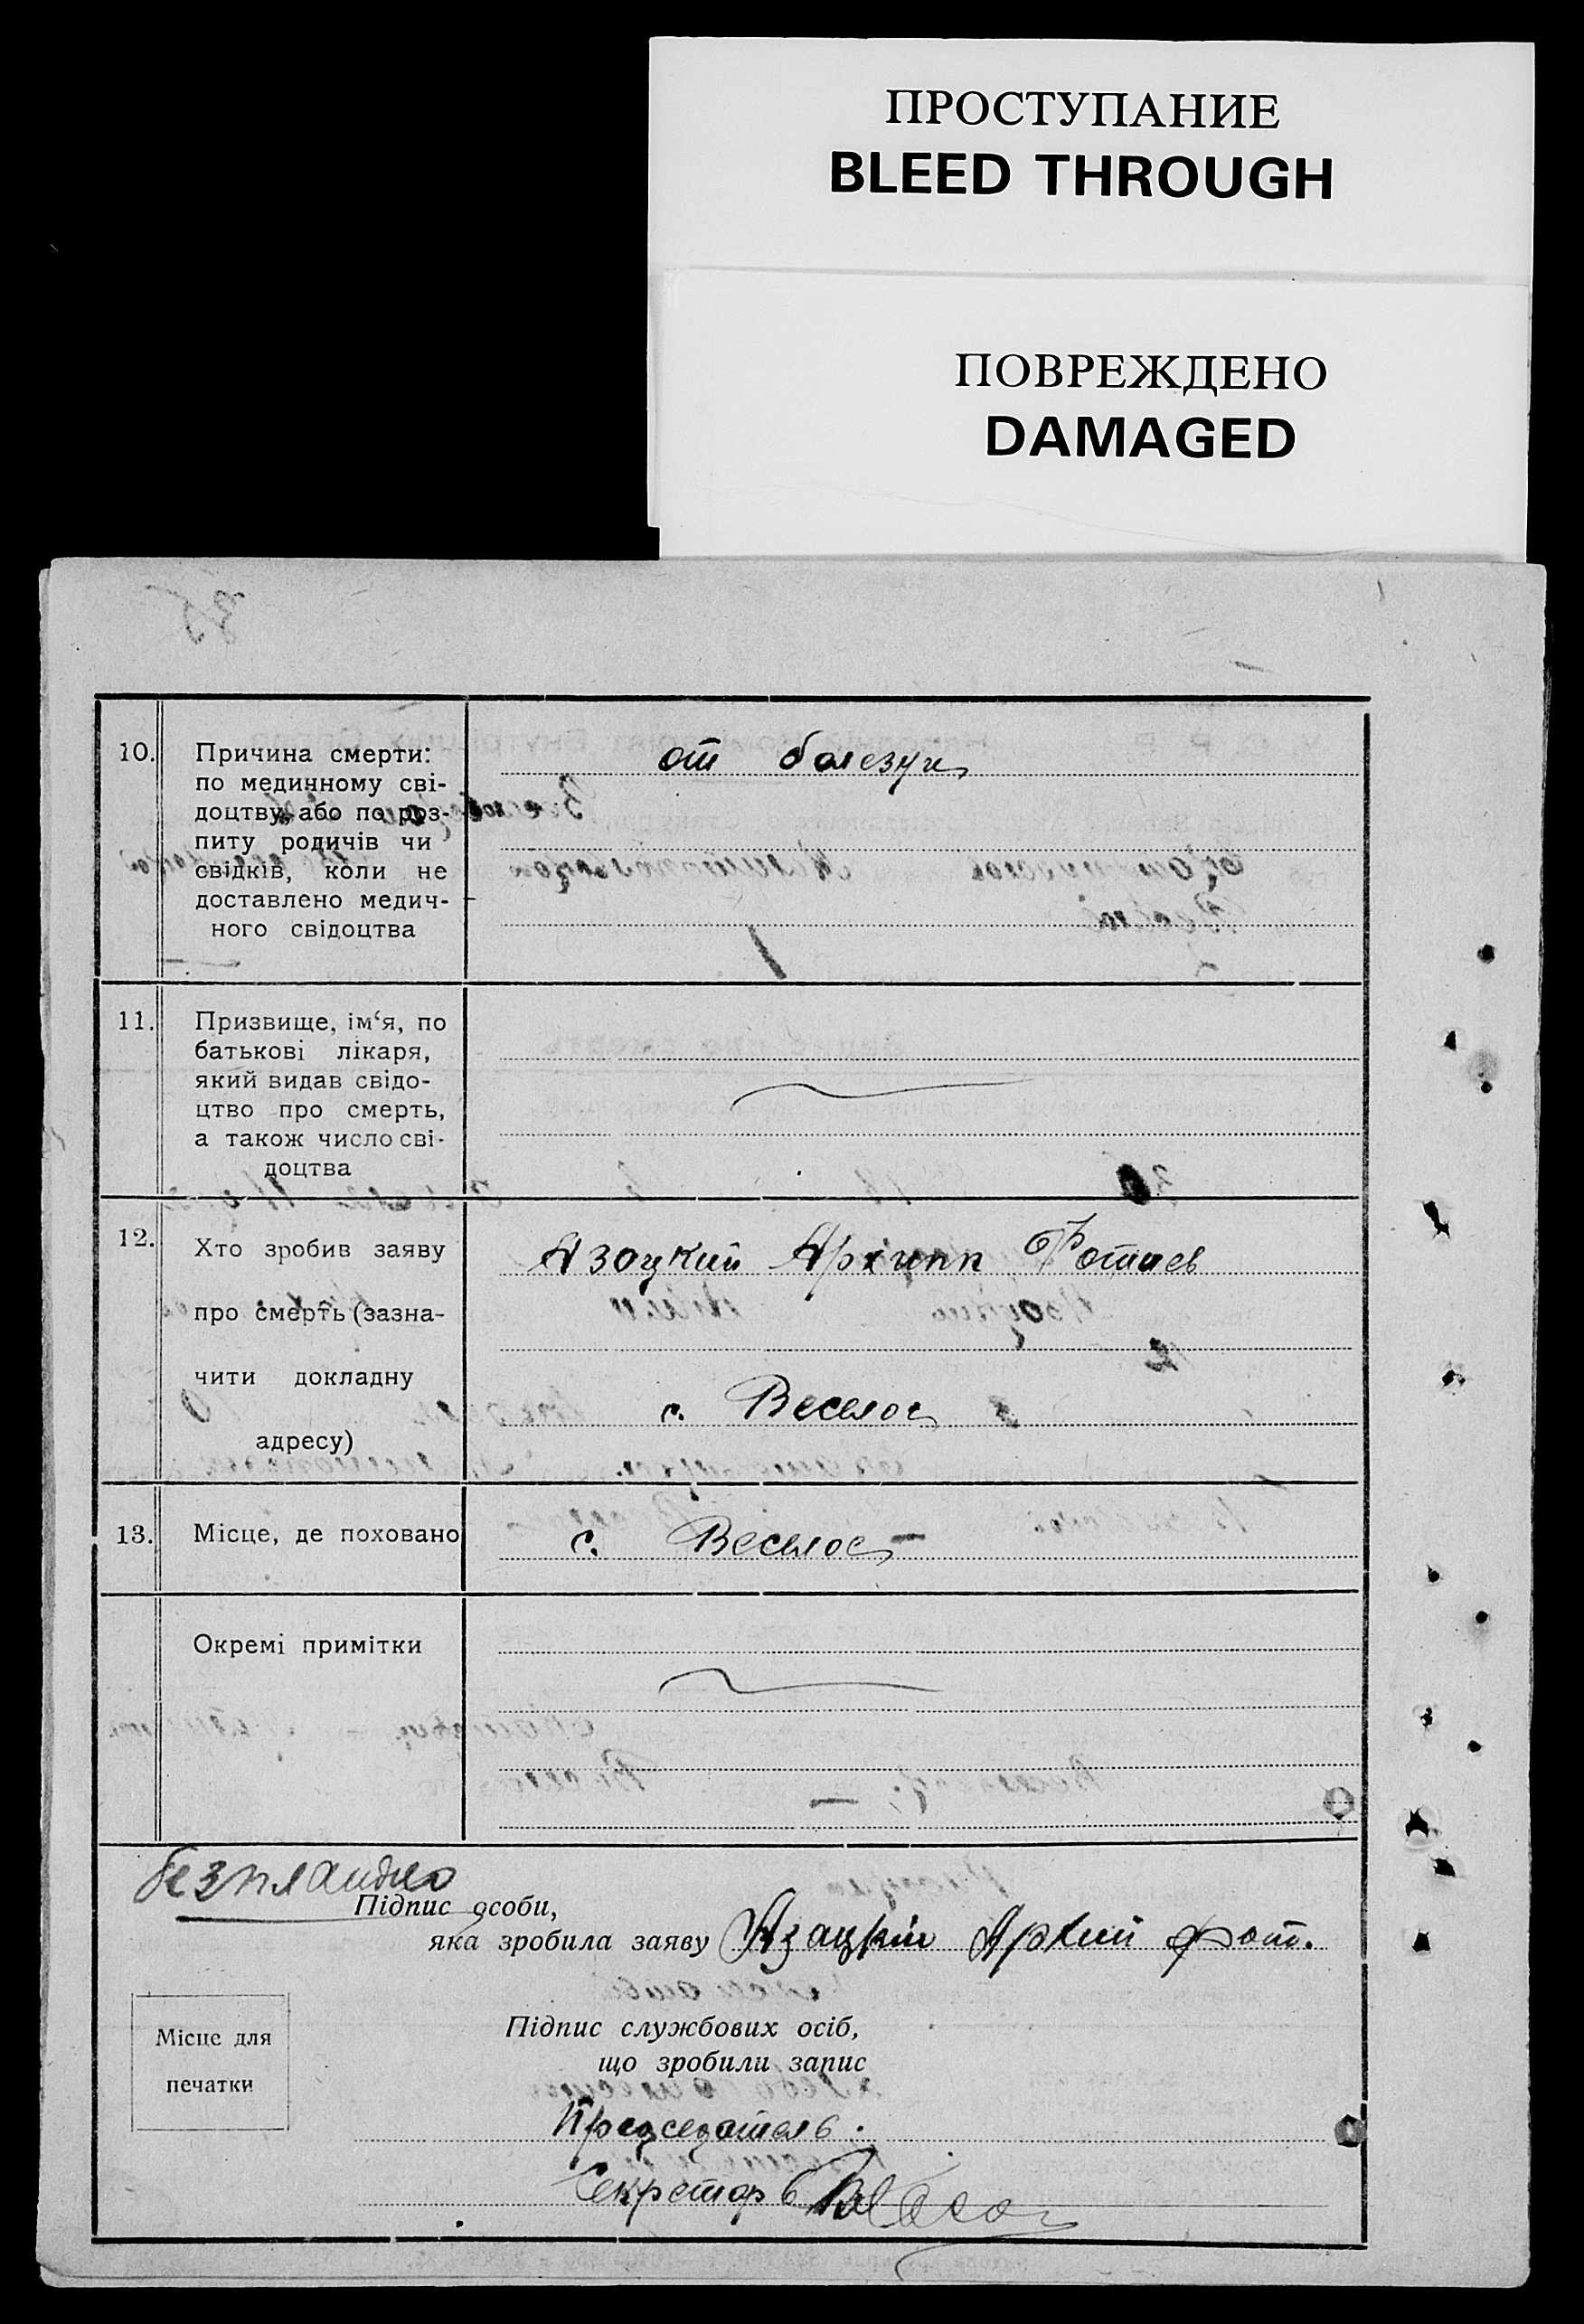 ПРОСТУПАНИЕ
BLEED THROUGH
ПОВРЕЖДЕНО
DAMAGED
10.
Причина смерти:
по медичному сві-
доцтву, або по роз-
питу родичів чи
свідків, коли не
доставлено медич-
ного свідоцтва
от болезни
11.
Призвище, ім‘я, по
батькові лікаря,
який видав свідо-
цтво про смерть,
а також число сві-
доцтва
12.
Хто зробив заяву
про смерть (зазна-
чити докладну
адресу)
Азоцкий Архипп Фотиев
с. Веселое
13.
Місце, де поховано
с. Веселое
Окремі примітки
Підпис особи,
яка зробила заяву Азацкий Архип Фот.
Місце для
печатки
Підпис службових осіб,
що зробили запис
Председатель.
Секретарь